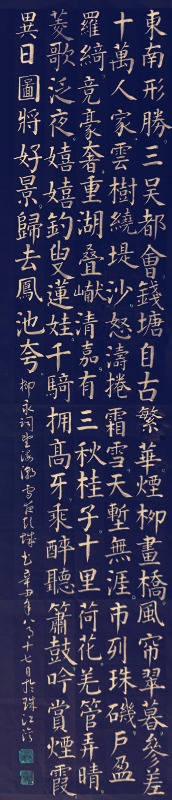 東南形勝三吳都會錢塘自古繁華煙柳畫橋風帘翠暮參差
十萬人家雲樹繞堤沙怒濤捲霜雪天塹無涯市列珠磯戶盈
羅綺竟豪奢重湖叠巘清嘉有三秋桂子十里荷花羌管弄晴
菱歌泛夜嬉嬉釣叟蓮娃千騎拥高牙乘醉聽簫鼓吟賞煙霞
異日圖將好景歸去鳳池夸 柳永詞望海潮 辛丑年八月十七日於珠江